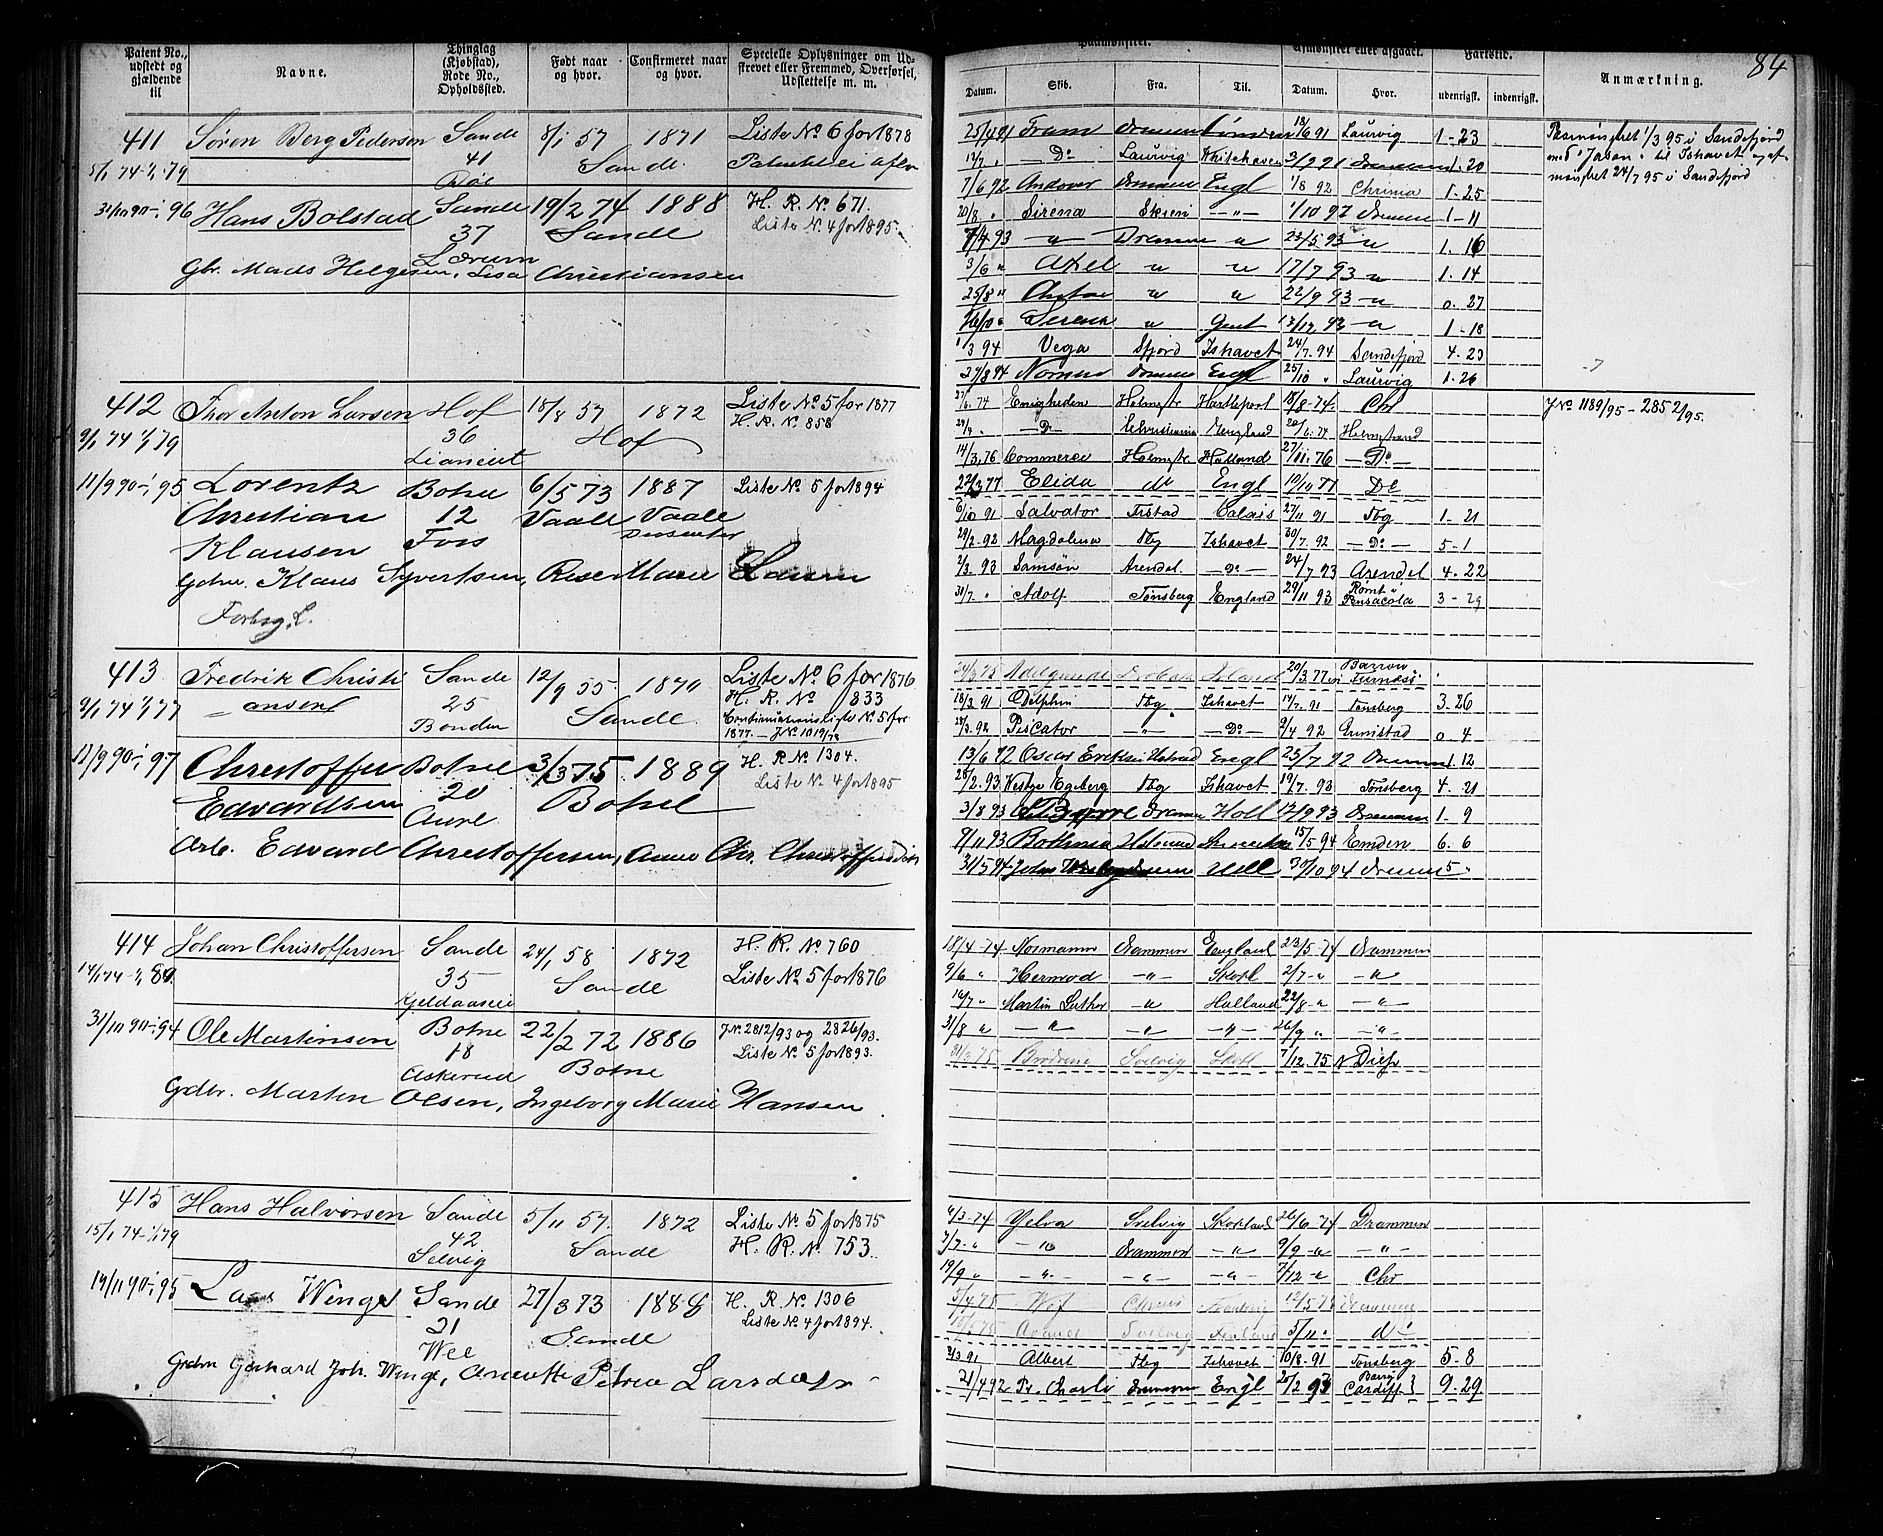 84
Patent No., udstedt og gjældende til
Navne.
Thinglag (Kjøbstad), Rode No., Opholdssted.
Født naar og hvor.
Confirmeret naar og hvor.
Specielle Oplysninger om Udskrevet eller Fremmed, Overførsel, Udslettelse m. m.
411 Søren Berg Pedersen Sande 8/1 57 1871 Liste No 6 for 1878
5/1 74-1/1 79 41 Sande
31/10 90-1/1 96 Hans Bolstad Sande 19/2 74 1888 H. R. No 671.
37 Sande Liste No. 4 for 1895.
Gbr. Mads Helgesen, Lisa Christiansen
412 Thor Anton Larsen Hof 18/8 57 1872 Liste No 5 for 1877
9/1 74 1/1 79 36 Hof H. R. No 858
11/9 90-1/1 95 Lorentz Botne 6/5 73 1887 Liste No 5 for 1894
Christian 12 Vaale Vaale
Klausen Foss Dissenter
Gdbr. Klaus Syvertsen, Marie
413 Fredrik Christi Sande 12/9 55 1870 Liste No 6 for 1876
9/1 74 1/1 77 ansen 25 Sande. H. R. No 833
Bonden Continuationsliste No 5 for
1877. - J No 1019/78
12/9 90-1/1 97 Christoffer Botne 3/3 75 1889 H. R. No 1304.
Edvardsen 20 Botne Liste No 4 for 1895
Arb. Edvard Christoffersen, Chr. Christoffersdtr
414 Johan Christoffersen Sande 24/1 58 1872 H. R. No 760
14/1 74 35 Sande Liste No 5 for 1876
31/10 90-1/1 94 Ole Martinsen Botne 22/2 72 1886 J No 2812/93 og 2826/93.
18 Botne Liste No 5 for 1893.
Askerud
Grdbr. Martin Olsen, Ingeborg Marie Hansen
415 Hans Halvorsen Sande 5/11 57. 1872 Liste No 5 for 1875
15/1 74-1/1 79 42 Sande H. R. No 753.
Selvig
14/11 90-1/1 95 Lars Winge Sande 27/3 73 1888 H. R. No. 1306
21 Sande Liste No 4 for 1894.
Wee
Gerhard Joh. Winge, Petrea Larsdatr
Paamønstret.
Afmønstret eller afgaaet.
Fartstid.
Anmærkning.
Datum. Skib. Fra. Til. Datum. Hvor. udenrigsk. indenrigsk.
25/4 91 Fram Drammen 13/6 91 Laurvig 1-23 Paamønstret 1/3 95 i Sandefjord
12/7 " Do Laurvig Whitehaven 3/9 91 Drammen 1-20 med "Jason" til Ishavet og af-
7/6 92 Andover Drammen Engl 1/8 92 Chrania 1-25 mønstret 24/7 95 i Sandefjord
20/8 " Sirena Skien -"- 1/10 92 Drammen 1-11
7/4 93 " Drammen " 23/5 93 " 1. 16
3/6 " Axel " " 17/7 93 " 1. 14
25/8 " " " 22/9 93 " 0. 27
Sirena " Gent 13/12 93 " 1-18
1/3 94 Vega Sfjord Ishavet 24/7. 94 Sandefjord 4-23
27/8 94 Drammen Engl 25/10 " Laurvig 1-26
27/4. 74 Enigheden Holmstr Hartlepool 18/8-74 Chr J No 1189/95 - 2852/95.
-Do- Christiania England Holmstrand
14/3. 76 Commerce Holmstr Holland 27/11. 76 -Do-
22/3 77 Elida do Engl 10/10 77 Do
6/10 91 Salvator Frstad Calais 27/11 91 Tbg 1-21
29/2. 92 Magdalena Tbg Ishavet 30/7. 92 -Do- 5-1
2/3. 93 Samson Arendal -Do- 24/7 93 Arendal 4-22
31/7. " Adolf Tønsberg England 29/11 93 Rømt i Pensacola 3-29
Adelgunde 20/3. 77 Barrow Furness
18/3. 91 Delphin Tbg Ishavet 14/7. 91 Tønsberg 3-26
Piscator -"- -Do- 9/4 92 Grimstad 0 4
13/6 92 Oscar Engl 25/7 92 Drammen 1. 12
25/2. 93 Svend Foyn Tbg Ishavet 19/7. 93 Tønsberg 4-21
3/8 93 Drammen Holl 12/9 93 Drammen 1-9
9/11 93 15/5 94 Emden 6. 6
31/5 94 John 30/10 94 Drammen 5
18/4-74 Normanna Drammen England 23/5-74 Drammen
9/6 " Hermod -"- Skotl 2/7-" -"-
16/7 " Martin Luther -"- Holland 22/8-" -"-
31/8 " -"- -"- -"- 26/9 " -"-
31/3 75 Brødrene Svelvig Skotl 7/12. 75
6/3-74 Yelva Svelvig Skotland 26/6-74 Drammen
7/7-" -"- Drammen -"- 9/9-" -"-
19/9 " -"- -"- -"- 7/12-" Chr
5/4 75 12/5 75 Drammen
Svelvig 5/11 " do
Albert Tbg Ishavet 10/8-91 Tønsberg 5-8
21/4 92 Pr. Charlie Drammen Engl Barry Cardiff 9-29